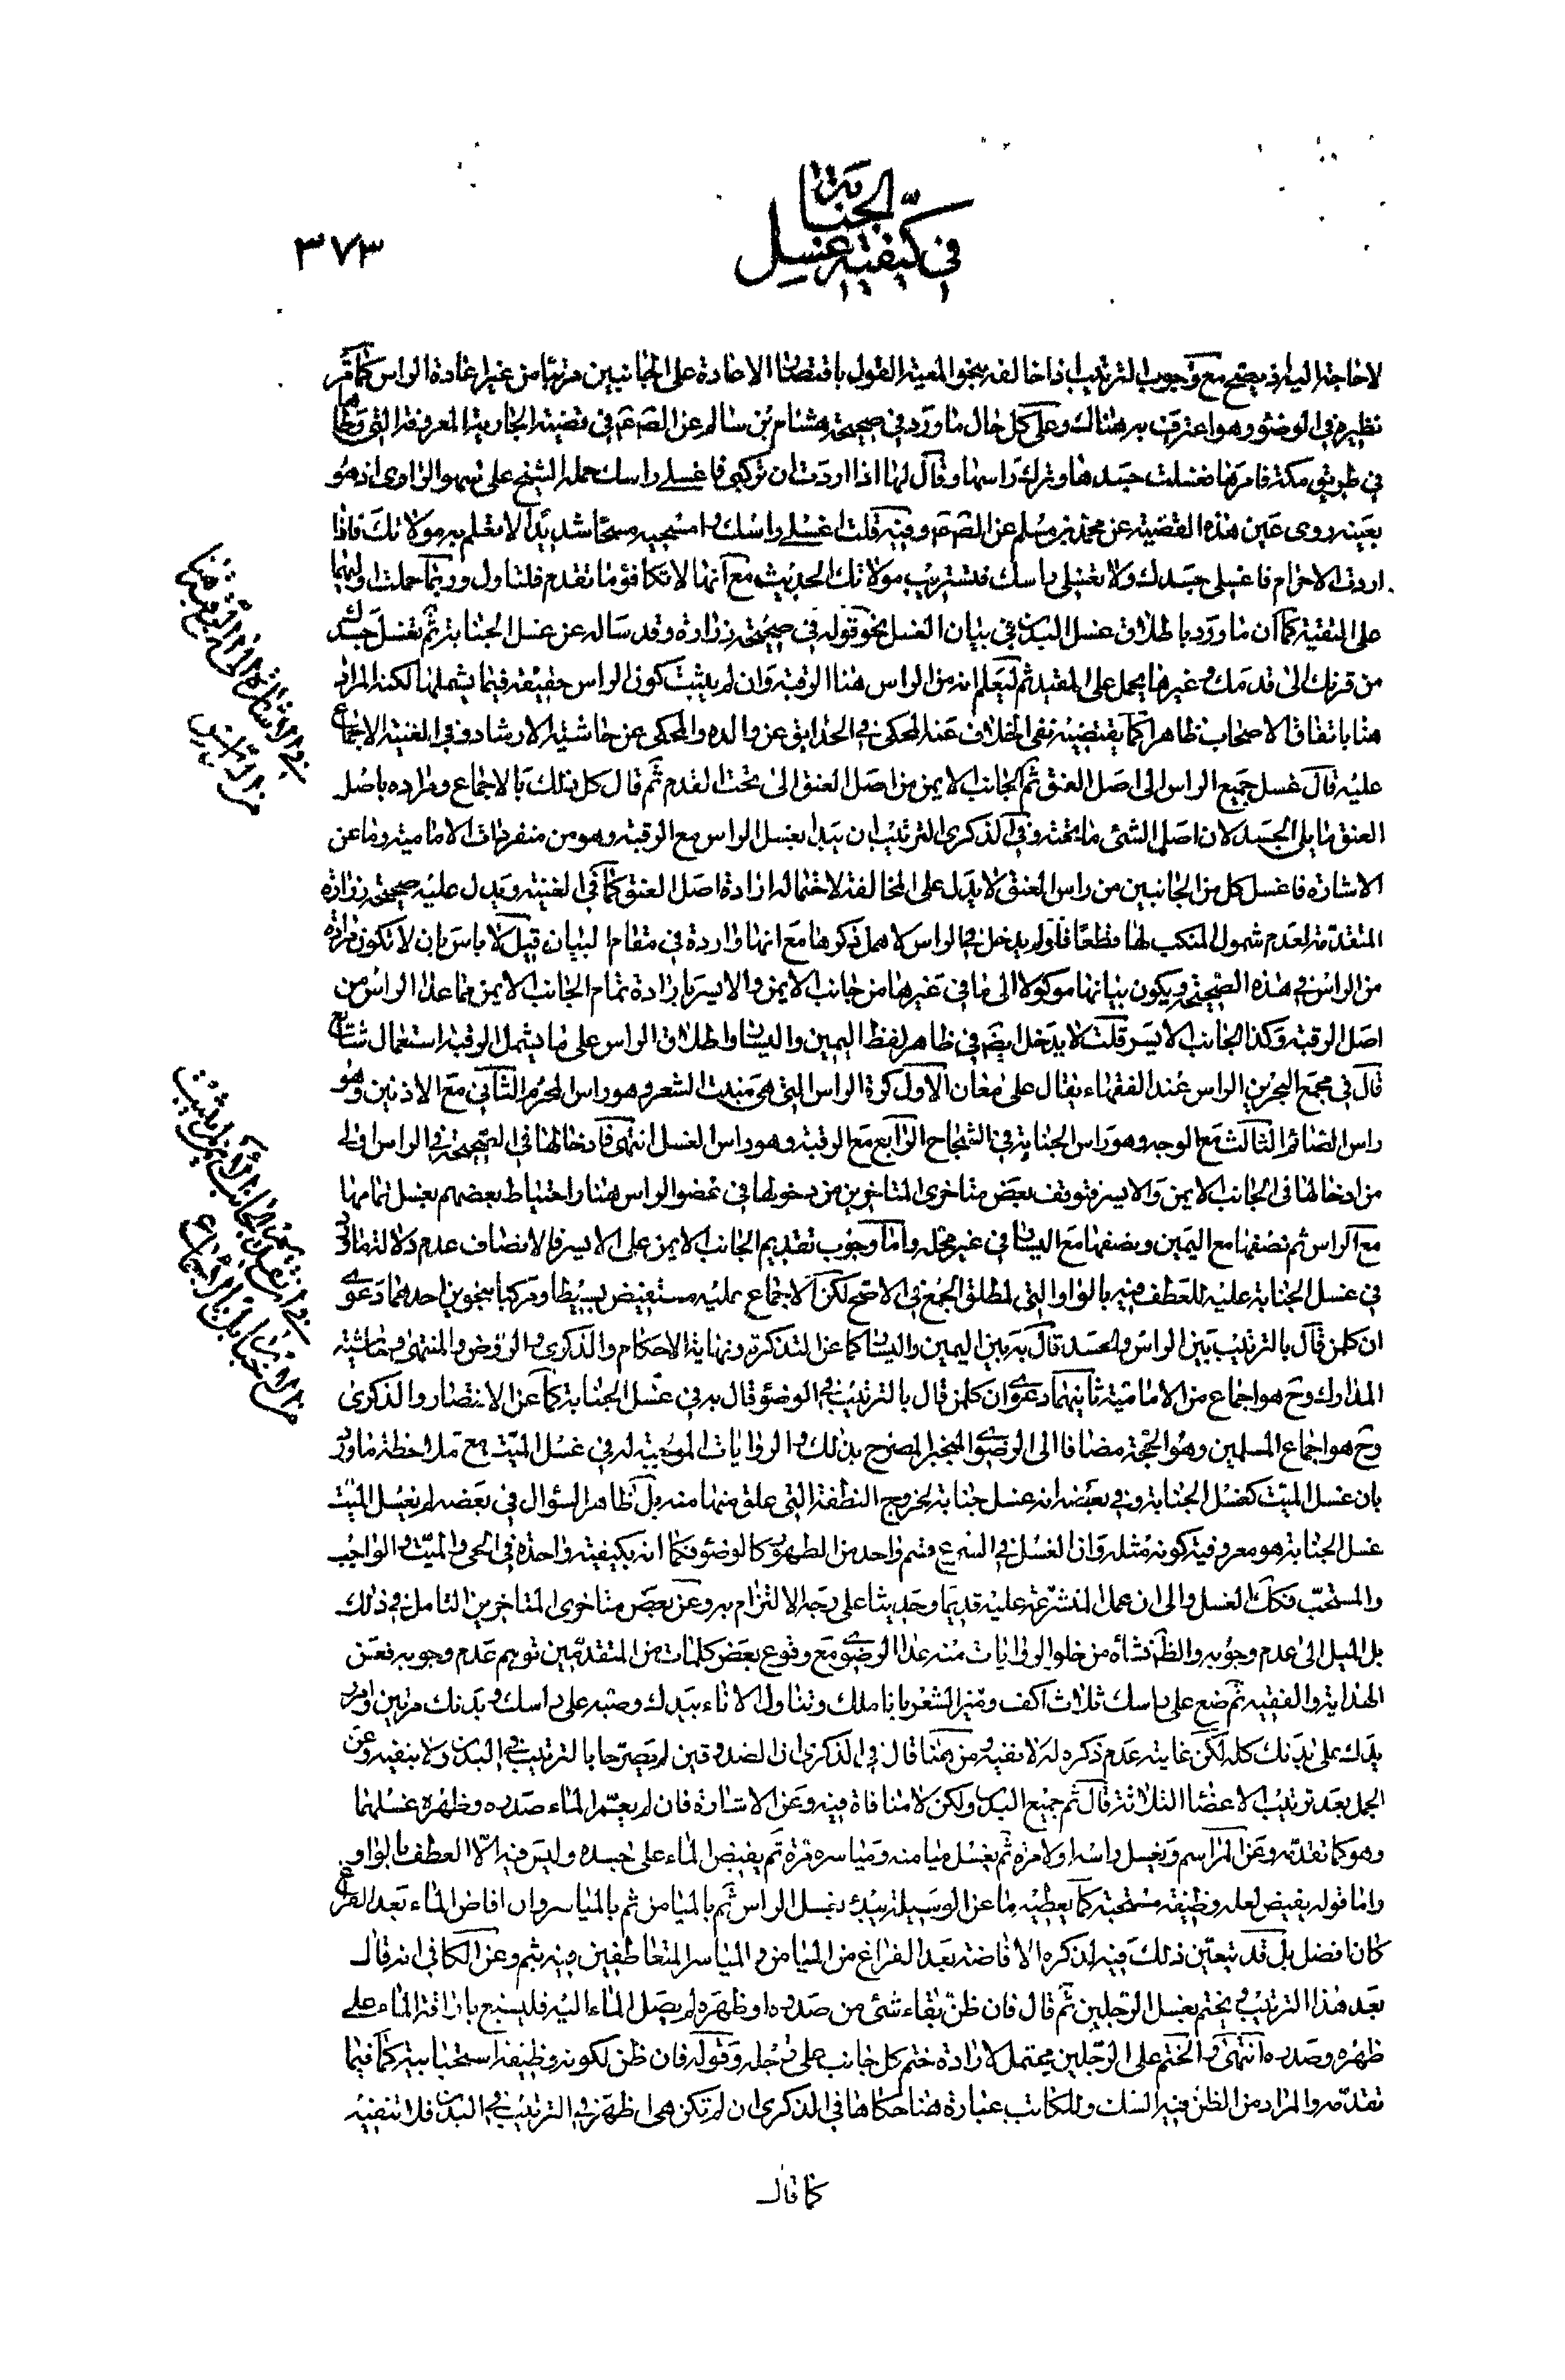 في كيفية غسل الجنابة
٣٧٣
لا حاجة اليه اذ يصح مع وجوب الترتيب اذا خالفه بنحو المعية القول باقتضاء الاعادة على الجانبين مرتبا من غير اعادة الراس كما مر
نظيره في الوضوء وهو اعترف به هنالك وعلى كل حال ما ورد في صحيحة هشام بن سالم عن الصادق ع في قضية الجارية المعروفة التي وطاها
في طريق مكة فامرها فغسلت جسدها وترك راسها وقال لها اذا اردت ان تركبي فاغسلي راسك حمله الشيخ على سهو الراوي اذ هو
بعينه روى عين هذه القضية عن محمد بن مسلم عن الصادق ع وفيه قلت اغسلي راسك و امسحيه مسحا شديدا لا تعلم به مولاتك فاذا
اردت الاحرام فاغسلي جسدك ولا تغسلي راسك فتستريب مولاتك الحديث مع انها لا تكافؤ ما تقدم فلتاول وربما حملت اوليهما
على التقية كما ان ما ورد باطلاق غسل البدن في بيان الغسل نحو قوله في صحيحة زرارة وقد ساله عن غسل الجنابة ثم تغسل جسدك
من قرنك الى قدمك و غيرها يحمل على المقيد ثم ليعلم انه من الراس هنا الرقبة وان لم يثبت كون الراس حقيقة فيما يشملها لكنه المراد
هنا باتفاق الاصحاب ظاهرا كما يقتضيه نفي الخلاف عنه المحكي في الحدايق عن والده والمحكي عن حاشية الارشاد وفي الغنية الاجماع
عليه قال غسل جميع الراس الى اصل العنق ثم الجانب الايمن من اصل العنق الى تحت القدم ثم قال كل ذلك بالاجماع ومراده باصل
العنق ما يلي الجسد لان اصل الشئ ما تحته وفي الذكرى الترتيب ان يبدا بغسل الراس مع الرقبة وهو من منفردات الامامية وما عن
الاشارة فاغسل كل من الجانبين من راس العنق لا يدل على المخالفة لاحتماله ارادة اصل العنق كما في الغنية ويدل عليه صحيحة زرارة
المتقدمة لعدم شمول المنكب لها قطعا فلو لم يدخل في الراس لاهمل ذكرها مع انها واردة في مقام البيان قيل لا باس بان لا تكون مرادة
من الراس في هذه الصحيحة ويكون بيانها موكولا الى ما في غيرها من جانب الايمن والايسر بارادة تمام الجانب الايمن مما عدا الراس من
اصل الرقبة وكذا الجانب الايسر قلت لا يدخل ايضم في ظاهر لفظ اليمين واليسار واطلاق الراس على ما يشمل الرقبة استعمال شائع
قال في مجمع البحرين الراس عند الفقهاء يقال على معان الاول كرة الراس التي هي منبت الشعر وهو راس المحرم الثاني مع الاذنين وهو
راس الصائم الثالث مع الوجه وهو راس الجناية في الشجاج الرابع مع الرقبة وهو راس الغسل انتهى فادخالها في الصحيحة في الراس اولى
من ادخالها في الجانب الايمن والايسر فتوقف بعض متاخري المتاخرين من دخولها في عضو الراس هنا واحتياط بعضهم بغسل تمامها
مع الراس ثم نصفها مع اليمين ونصفها مع اليسار في غير محله واما وجوب تقديم الجانب الايمن على الايسر فالانصاف عدم دلالة ما ورد
في غسل الجنابة عليه للعطف فيه بالواو التي لمطلق الجمع في الاصح لكن الاجماع عليه مستفيض بسيطا ومركبا بنحوين احدهما دعوى
ان كل من قال بالترتيب بين الراس والجسد قال به بين اليمين واليسار كما عن التذكرة ونهاية الاحكام والذكرى و الروض والمنتهى وحاشية
المدارك وح هو اجماع من الامامية ثانيهما دعوى ان كل من قال بالترتيب في الوضوء قال به في غسل الجنابة كما عن الانتصار والذكرى
وح هو اجماع المسلمين وهو الحجة مضافا الى الرضوي المنجبر المصرح بذلك و الروايات الموجبة له في غسل الميت مع ملاحظة ما ورد
بان غسل الميت كغسل الجنابة وفي بعضه انه غسل جنابة لخروج النطفة التي خلق منها منه بل ظاهر السؤال في بعضه لم يغسل الميت
غسل الجنابة هو معروفية كونه مثله وان الغسل في الشرع قسم واحد من الطهور كالوضوء فكما انه بكيفية واحدة في الحي والميت و الواجب
والمستحب فكك الغسل والى ان عمل المتشرعة عليه قديما وحديثا على وجه الالتزام به وعن بعض متاخري المتاخرين التامل في ذلك
بل الميل الى عدم وجوبه والظن نشأه من خلو الروايات منه عدا الرضوي مع وقوع بعض كلمات من المتقدمين توهم عدم وجوبه فعن
الهداية والفقيه ثم ضع على راسك ثلاث اكف وميز الشعر باناملك وتناول الاناء بيدك وصبه على راسك وبدنك مرتين وامرر
يدك على بدنك كله لكن غايته عدم ذكره له لا نفيه و من هنا قال في الذكرى ان الصدوقين لم يصرحا بالترتيب في البدن ولا بنفيه وعن
الجمل بعد ترتيب الاعضا الثلاثة قال ثم جميع البدن ولكن لا منافاة فيه وعن الاشارة فان لم يعم الماء صدره وظهره غسلهما
وهو كما تقدمه وعن المراسم ويغسل راسه اولا مرة ثم يغسل ميامنه ومياسره مرة ثم يفيض الماء على جسده وليس فيه الا العطف بالواو
واما قوله يفيض لعله وظيفة مستحبة كما يعطيه ما عن الوسيلة يبدء بغسل الراس ثم بالميامن ثم بالمياسر وان افاض الماء بعد الفراغ
كان افضل بل قد يتعين ذلك فيه لذكره الافاضة بعد الفراغ من الميامن و المياسر المتعاطفين فيه بثم وعن الكافي انه قال
بعد هذا الترتيب و يختم بغسل الرجلين ثم قال فان ظن بقاء شئ من صدره او ظهره لم يصل الماء اليه فليسبغ باراقة الماء على
ظهره وصدره انتهى و الختم على الرجلين يحتمل لارادة ختم كل جانب على رجله وقوله فان ظن لكونه وظيفة استحبابية كما فيما
تقدمه والمراد من الظن فيه الشك وللكاتب عبارة هنا حكاها في الذكرى ان لم تكن هي اظهر في الترتيب في البدن فلا تنفيه
كما قال